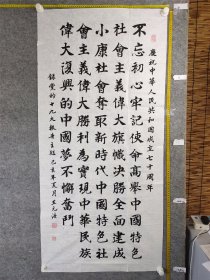 慶祝中華人民共和國成立七十周年
不忘初心牢記使命高舉中國特色
社會主義偉大旗幟決勝全面建成
小康社會奪取新時代中國特色社
會主義偉大勝利為實現中華民族
偉大復興的中國夢不懈奮鬥
錄黨的十九大報告主題己亥年夏月